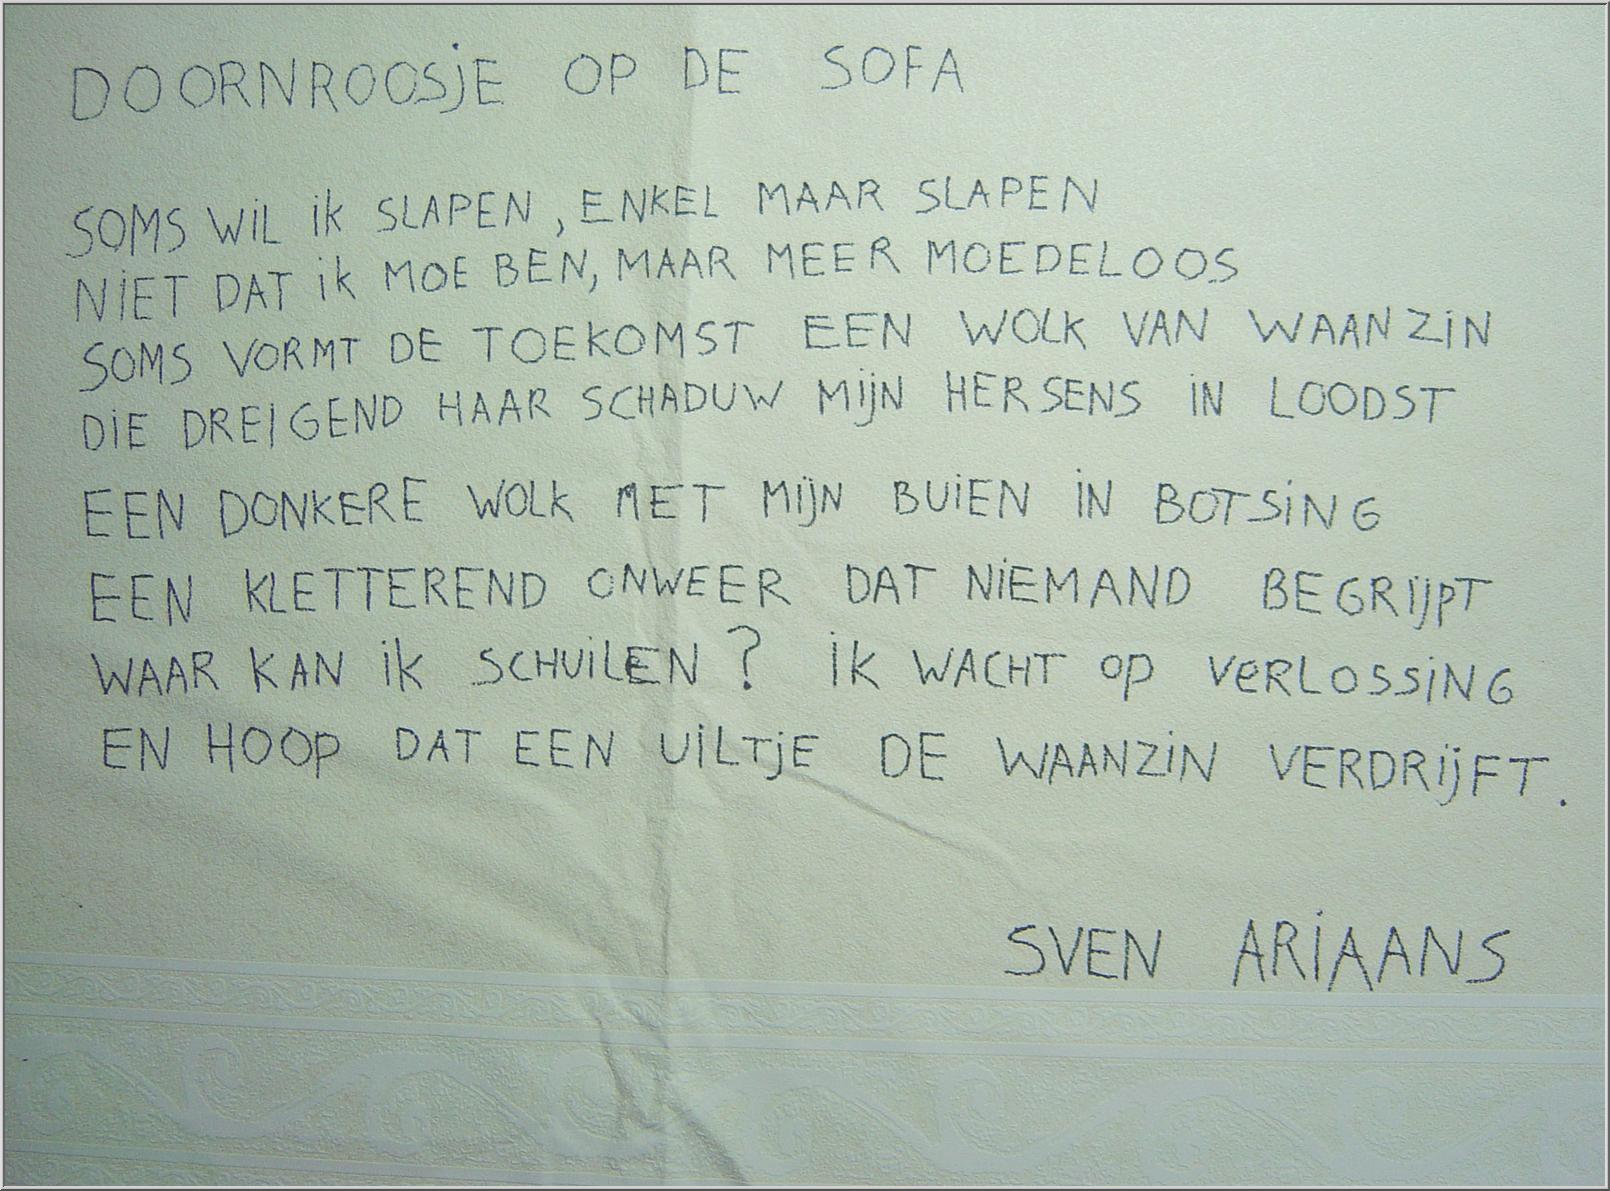 DOORNROOSjE OP DE SOFA
SOMS WiL iK SLAPEN, ENKEL MAAR SLAPEN
NiET DAT iK MOE BEN, MAAR MEER MOEDELOOS
SOMS VORMT DE TOEKOMST EEN WOLK VAN WAANZiN
DiE DREIGEND HAAR SCHADUW MijN HERSENS iN LOODST
EEN DONKERE WOLK MET MijN BUiEN iN BOTSiNG
EEN KLETTEREND ONWEER DAT NiEMAND BEGRijpT
WAAR KAN iK SCHUiLEN? iK WACHT Op VeRLOSSiNG
EN HOOp DAT EEN UiLTjE DE WAANZiN VERDRijFT.
SVEN ARiAANS